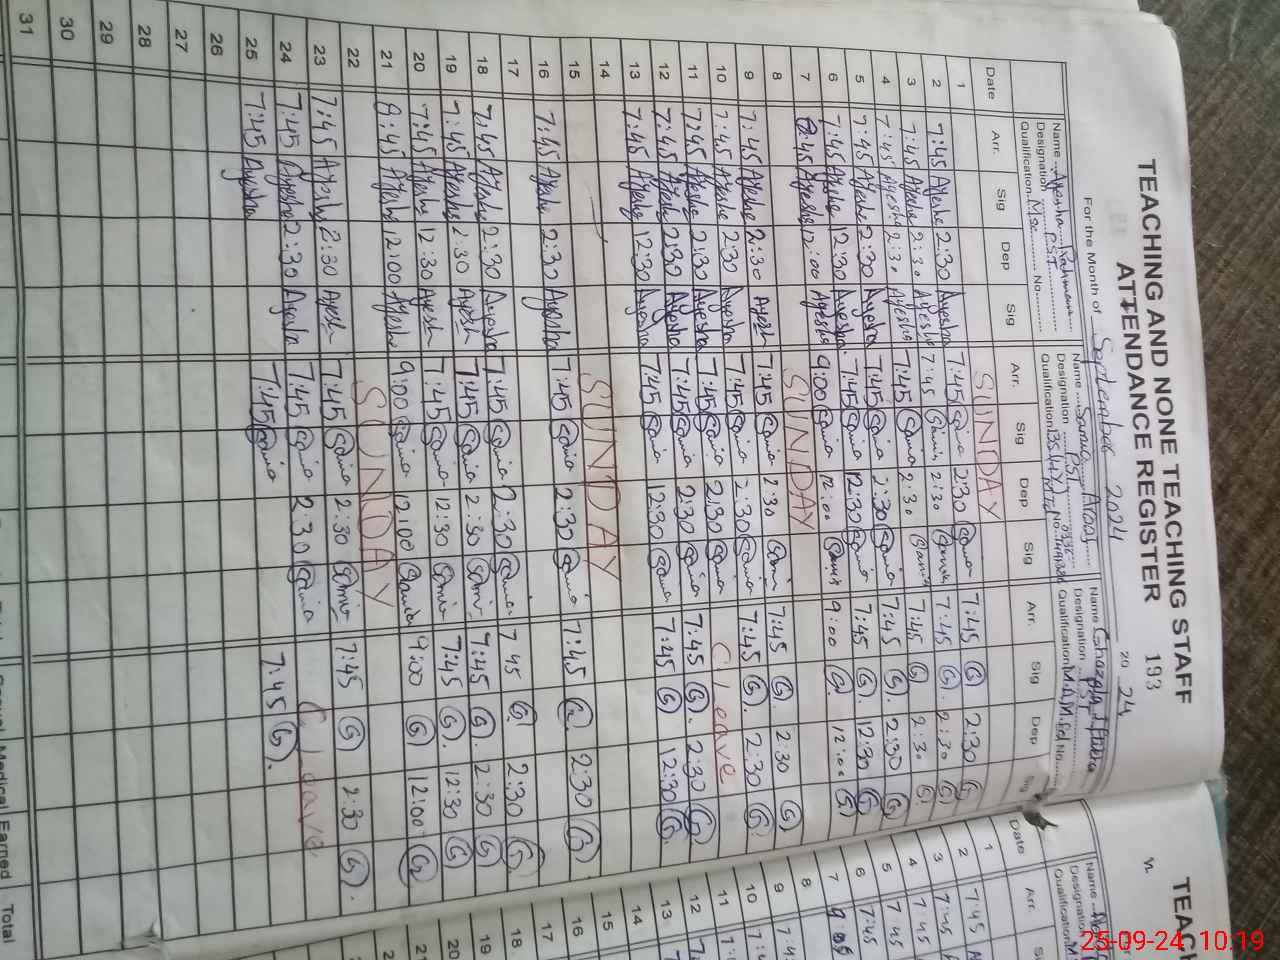 TEACHING AND NONE TEACHING STAFF
ATTENDANCE REGISTER 193
For the Month of September 2024 20 24
Name Ayesha Rahman
Designation P.S.T
Qualification Msc No.
Name Sania Arooj
Designation PST
Qualification No.
Name Ghazala
Designation PST
Qualification M.A, M.Ed No.
Date Arr. Sig Dep Sig Arr. Sig Dep Sig Arr. Sig Dep Sig
1 SUNDAY
2 7:45 Ayesha 2:30 Ayesha 7:45 Sania 2:30 Sania 7:45 G 2:30 G
3 7:45 Ayesha 2:30 Ayesha 7:45 Sania 2:30 Sania 7:45 G 2:30 G
4 7:45 Ayesha 2:30 Ayesha 7:45 Sania 2:30 Sania 7:45 G 2:30 G
5 7:45 Ayesha 2:30 Ayesha 7:45 Sania 2:30 Sania 7:45 G 2:30 G
6 7:45 Ayesha 12:30 Ayesha 7:45 Sania 12:30 Sania 7:45 G 12:30 G
7 8:45 Ayesha 12:00 Ayesha 9:00 Sania 12:00 Sania 9:00 G 12:00 G
8 SUNDAY
9 7:45 Ayesha 2:30 Ayesha 7:45 Sania 2:30 Sania 7:45 G 2:30 G
10 7:45 Ayesha 2:30 Ayesha 7:45 Sania 2:30 Sania 7:45 G 2:30 G
11 7:45 Ayesha 2:30 Ayesha 7:45 Sania 2:30 Sania C Leave
12 7:45 Ayesha 2:30 Ayesha 7:45 Sania 2:30 Sania 7:45 G 2:30 G
13 7:45 Ayesha 12:30 Ayesha 7:45 Sania 12:30 Sania 7:45 G 12:30 G
14
15 SUNDAY
16 7:45 Ayesha 2:30 Ayesha 7:45 Sania 2:30 Sania 7:45 G 2:30 G
17
18 7:45 Ayesha 2:30 Ayesha 7:45 Sania 2:30 Sania 7:45 G 2:30 G
19 7:45 Ayesha 2:30 Ayesha 7:45 Sania 2:30 Sania 7:45 G 2:30 G
20 7:45 Ayesha 12:30 Ayesha 7:45 Sania 12:30 Sania 7:45 G 12:30 G
21 8:45 Ayesha 12:00 Ayesha 9:00 Sania 12:00 Sania 9:00 G 12:00 G
22 SUNDAY
23 7:45 Ayesha 2:30 Ayesha 7:45 Sania 2:30 Sania 7:45 G 2:30 G
24 7:45 Ayesha 2:30 Ayesha 7:45 Sania 2:30 Sania C Leave
25 7:45 Ayesha 7:45 Sania 7:45 G
26
27
28
29
30
31
Medical Earned Total
TEACH
Name
Designation
Qualification
Date Arr.
1
2 7:45
3 7:45
4 7:45
5 7:45
6 7:45
7
8
9
10
11
12
13
14
15
16
17
18
19
20
25-09-24 10:19